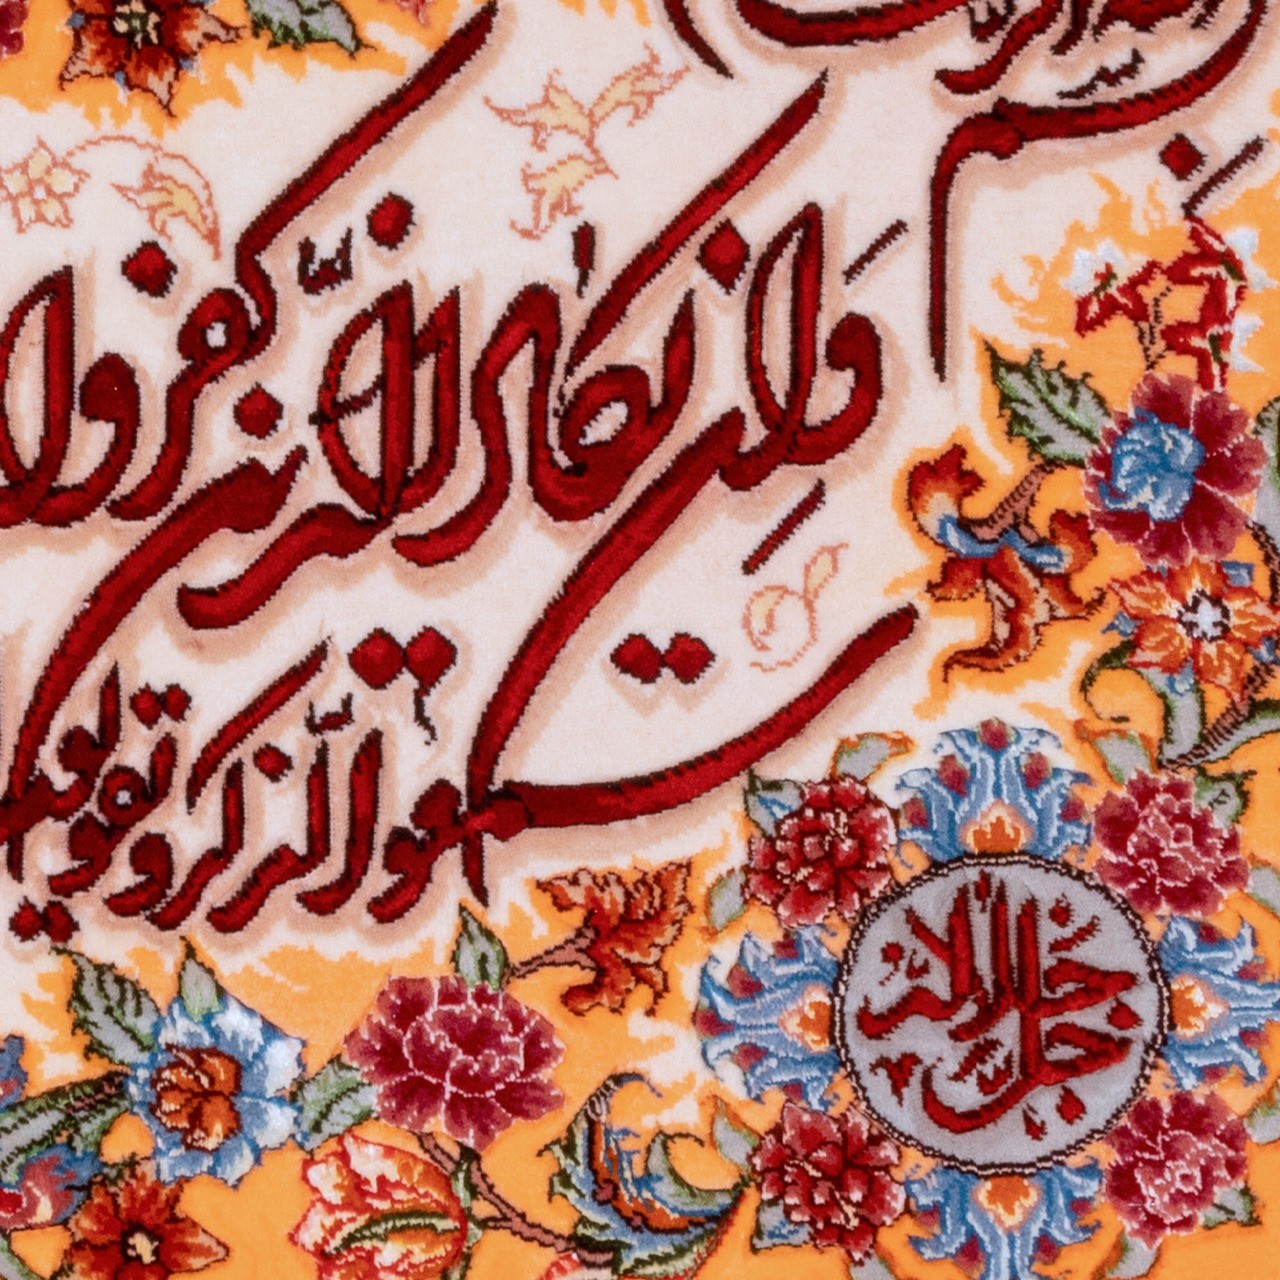 وَإِن يكاد الَّذين كفروا
سمعوا الذّكر ويقولون
جل جلاله